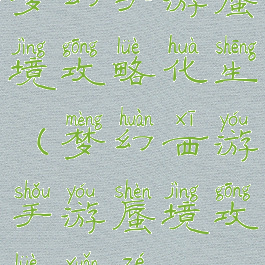 游蜃
jìng gōng lüè huà shēng
境攻略化生
mèng huàn xī yóu
（梦幻西游
shǒu yóu shèn jìng gōng
手游蜃境攻
lüè xuǎn zé